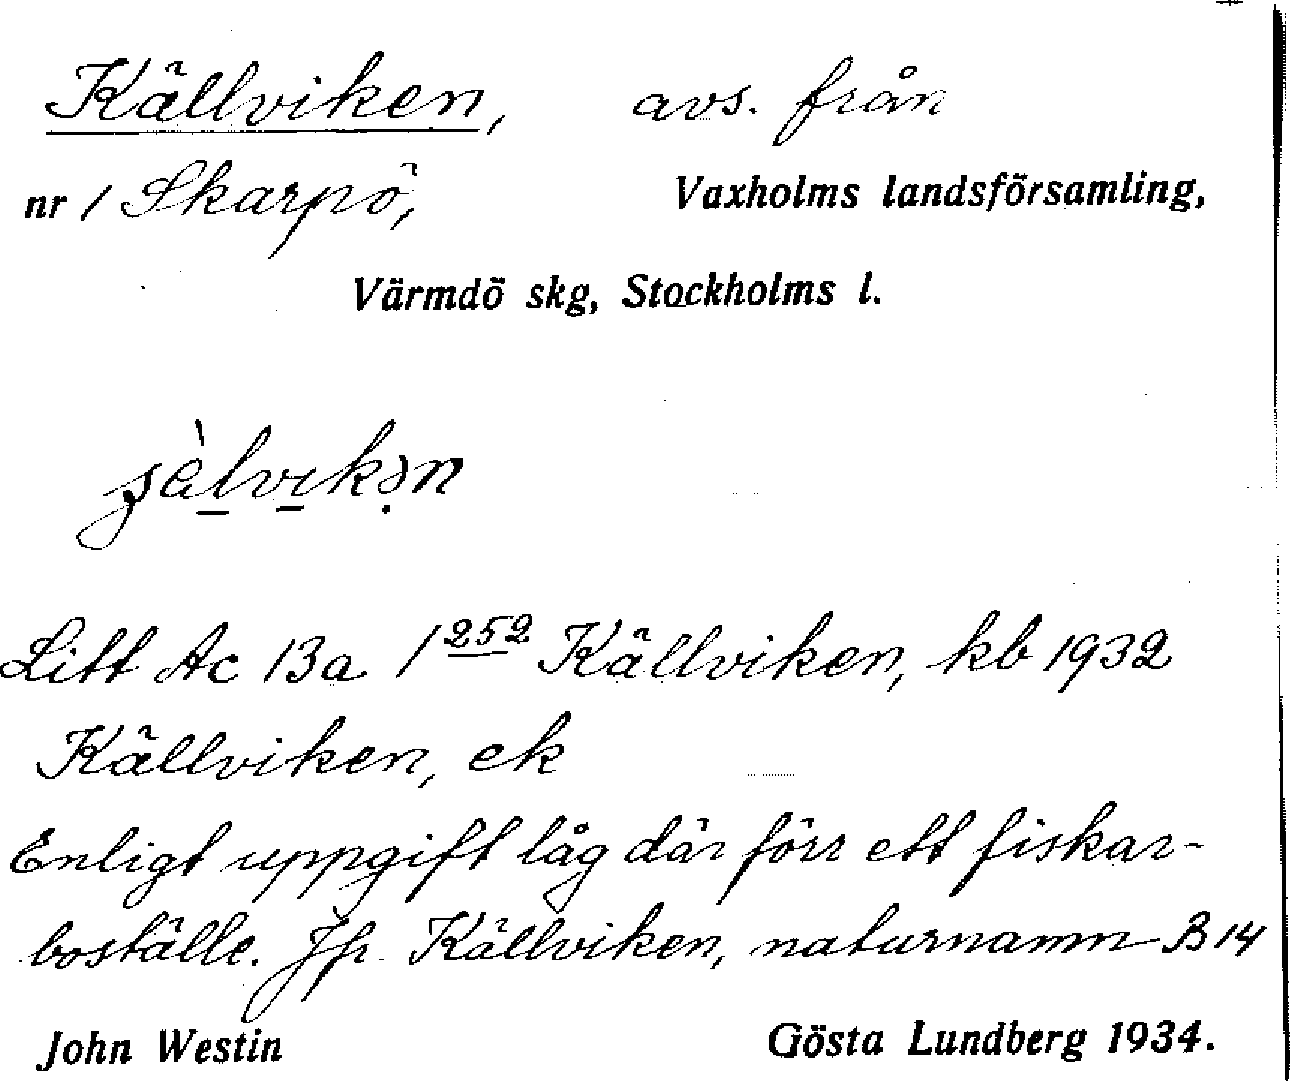 Källviken, avs. från
nr 1 Skarpö, Vaxholms landsförsamling,
Värmdö skg, Stockholms l.
Litt Ac 13a 1 252 Källviken, kb 1932
Källviken, ek
Enligt uppgift låg där förr ett fiskar-
boställe. Jfr Källviken, naturnamn B 14
John Westin Gösta Lundberg 1934.